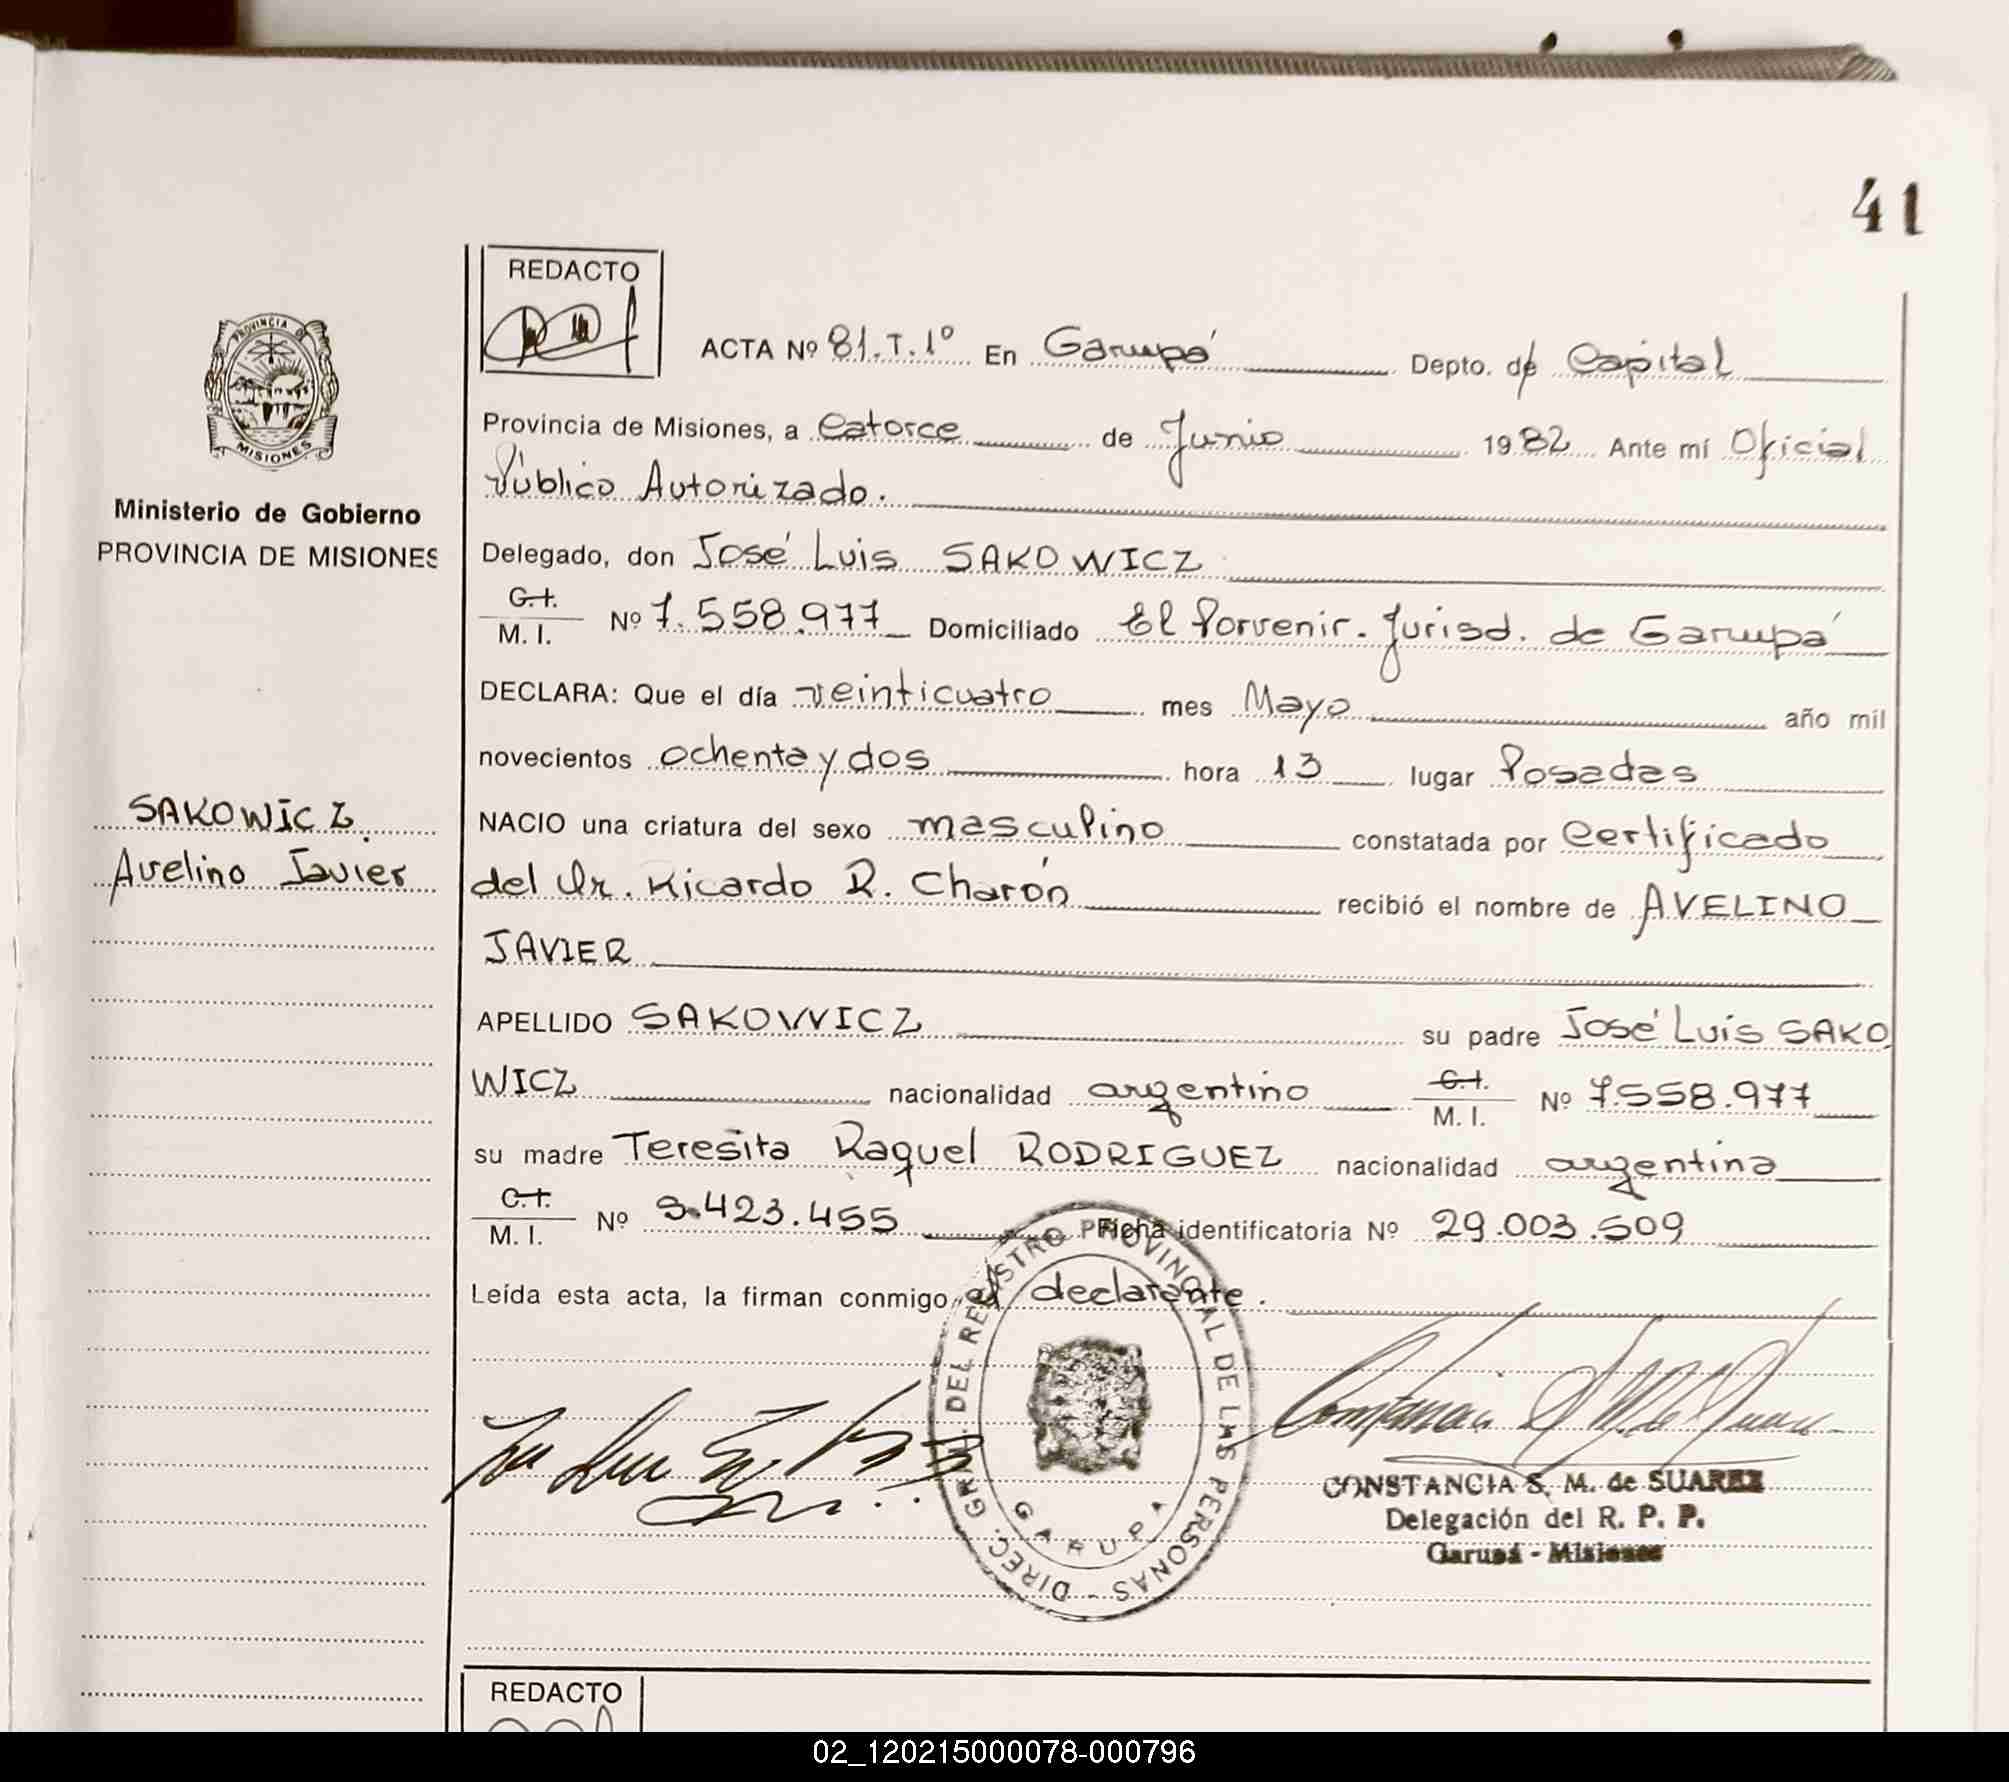 41
REDACTO
PROVINCIA DE
MISIONES
Ministerio de Gobierno
PROVINCIA DE MISIONES
SAKOWICZ.
Avelino Javier
ACTA Nº 81.T.1º En Garupá Depto. de Capital
Provincia de Misiones, a Catorce de Junio 1982 Ante mí Oficial
Público Autorizado.
Delegado, don José Luis SAKOWICZ
C.I. M. I. Nº 7.558.977 Domiciliado El Porvenir. Jurisd. de Garupá
DECLARA: Que el día veinticuatro mes Mayo año mil
novecientos ochenta y dos hora 13 lugar Posadas
NACIO una criatura del sexo masculino constatada por Certificado
del Dr. Ricardo R. Charón recibió el nombre de AVELINO
JAVIER
APELLIDO SAKOWICZ su padre José Luis SAKO
WICZ nacionalidad argentino C.I. M. I. Nº 7.558.977
su madre Teresita Raquel RODRIGUEZ nacionalidad argentina
C.I. M. I. Nº .423.455 Ficha identificatoria Nº 29.003.509
Leída esta acta, la firman conmigo, el declarante.
DIREC. GRAL. DEL REGISTRO PROVINCIAL DE LAS PERSONAS -
GARUPA
CONSTANCIA S. M. de SUAREZ
Delegación del R. P. P.
Garupá - Misiones
REDACTO
02_120215000078-000796